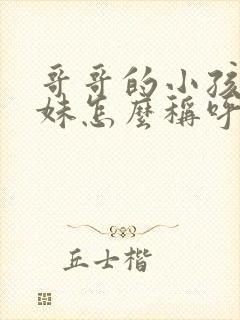 哥哥的小孩
妹怎麼稱呼
丘士楷